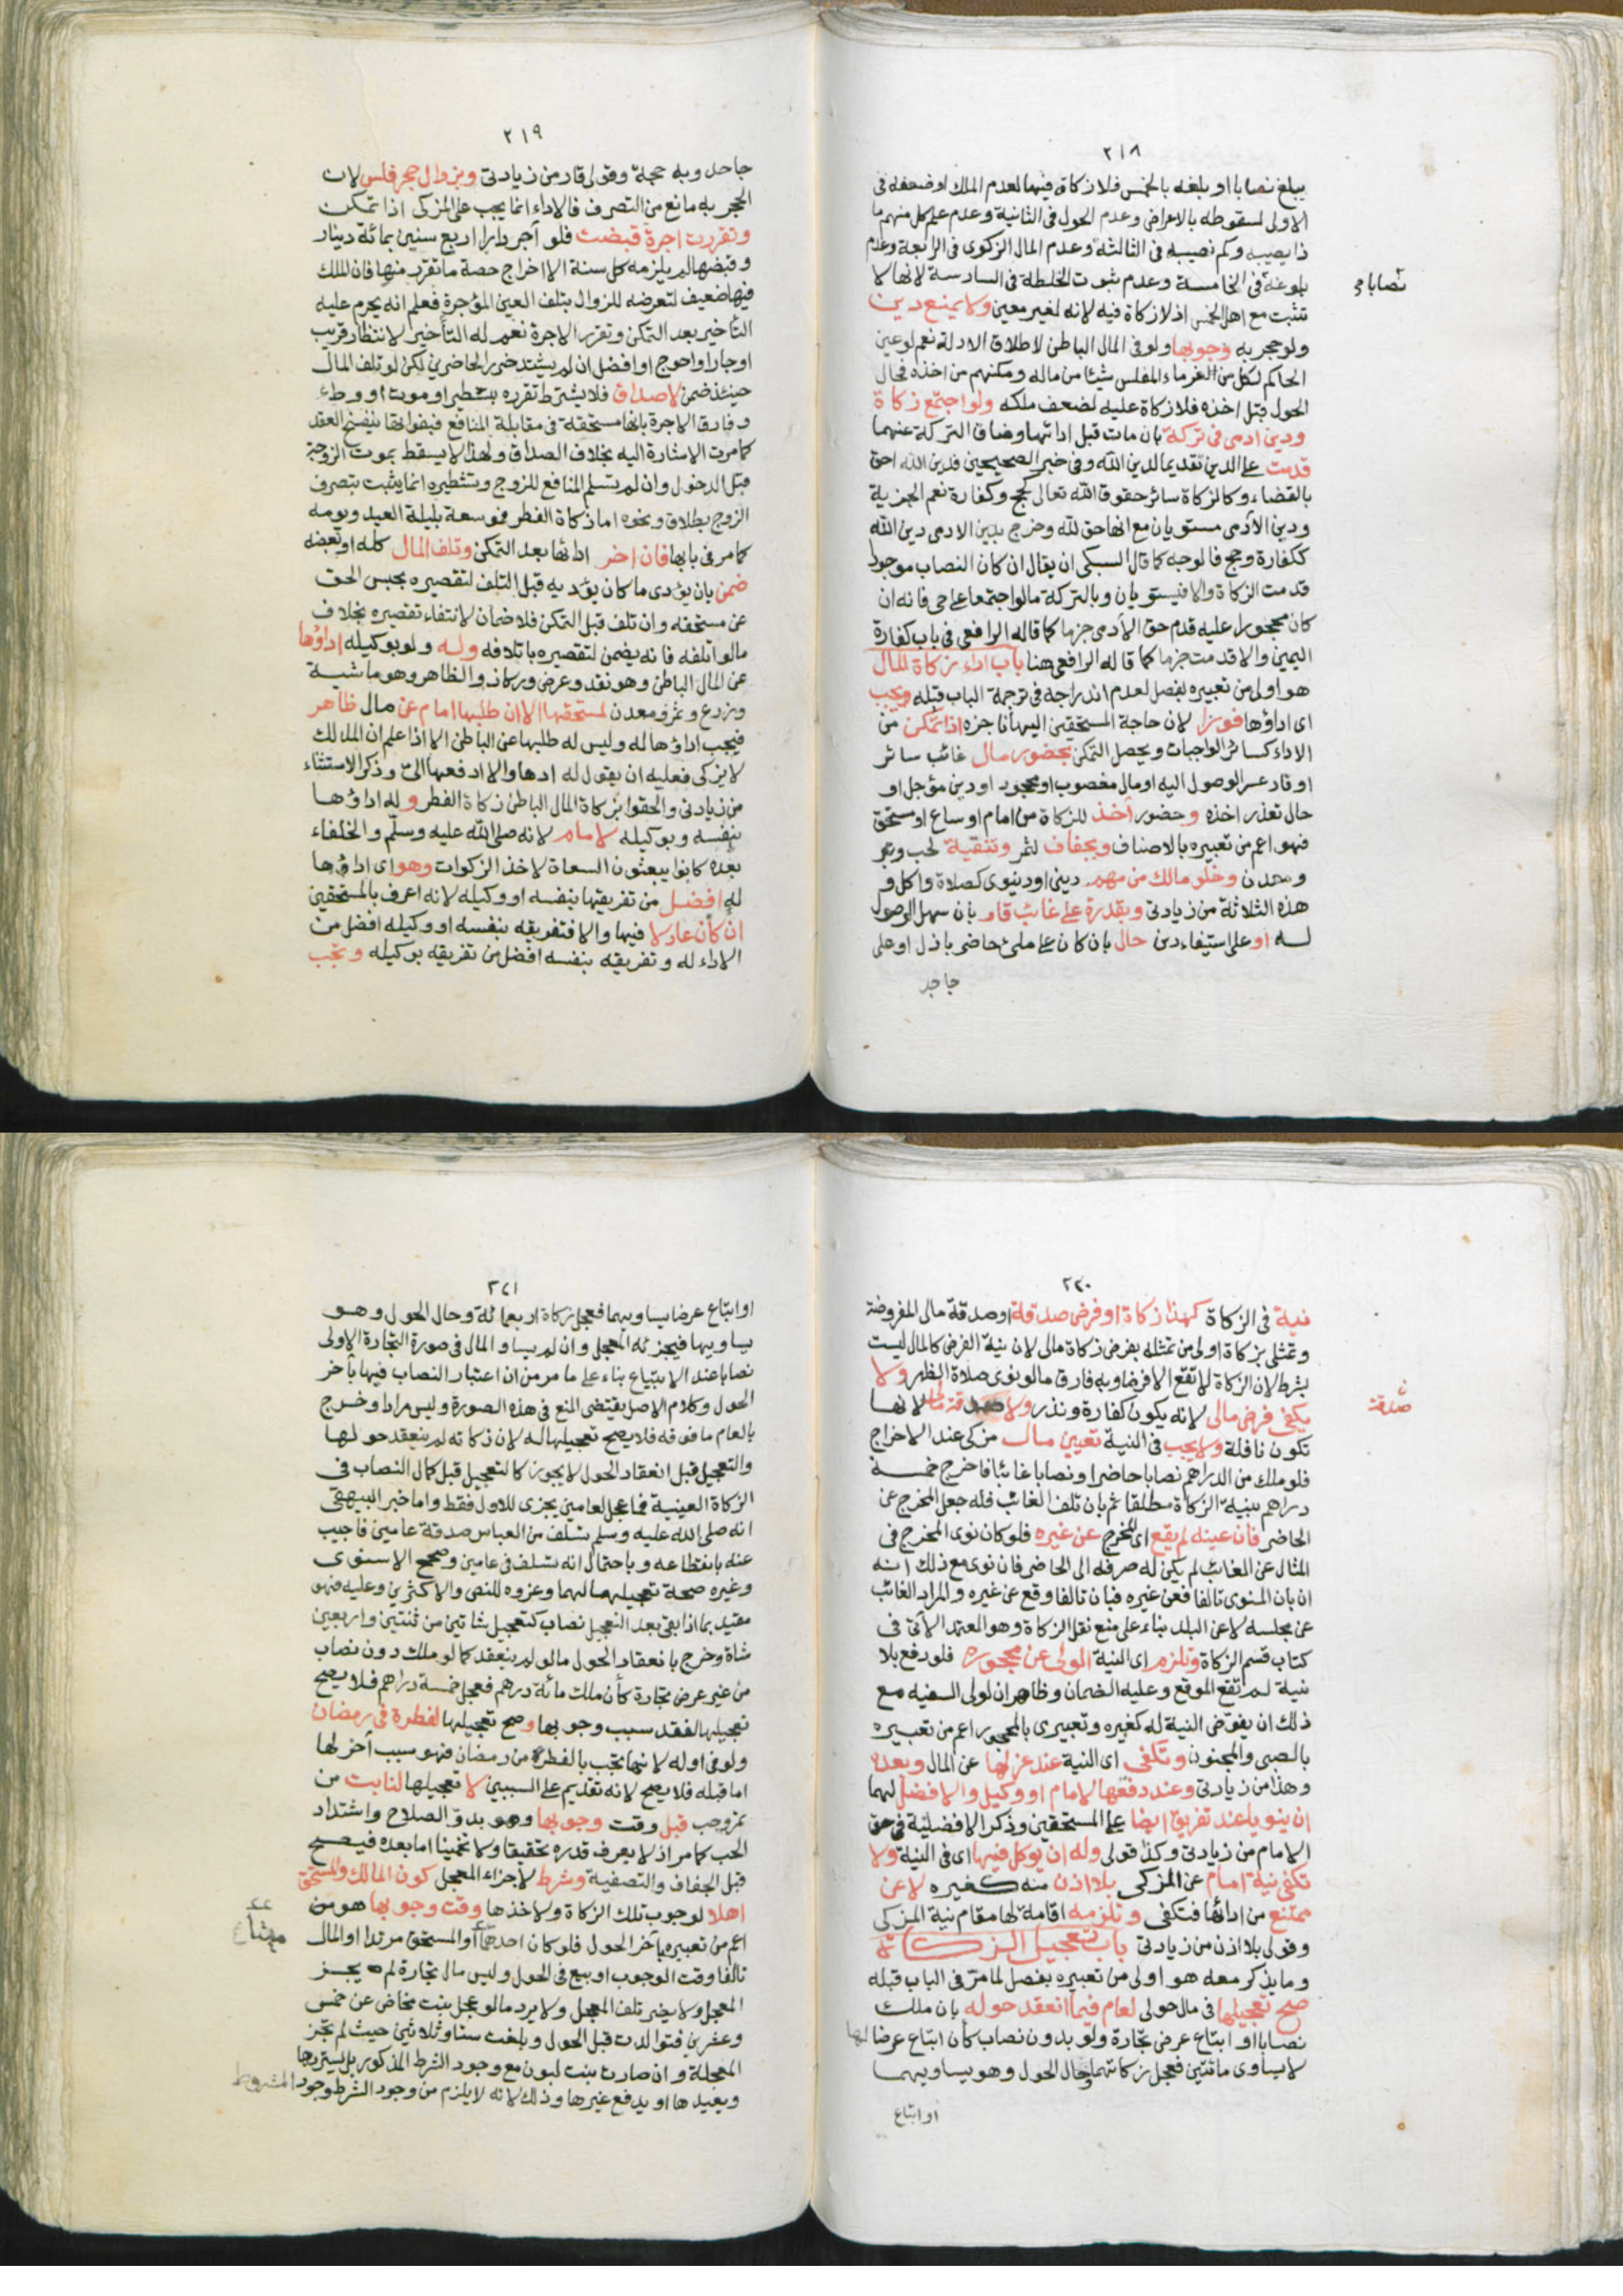 ٢١٨
يبلغ نصابا او بلغه بالخمس فلا زكاة فيها لعدم الملك او ضعفه في
الاولى لسقوطه بالاعراض وعدم الحول في الثانية وعدم علم كل منهم ما
ذا يصيبه وكم نصيبه في الثالثة وعدم المال الزكوي في الرابعة وعدم
بلوغه في الخامسة وعدم ثبوت الخلطة في السادسة لانها لا
نصابا
تثبت مع اهل الخمس اذ لا زكاة فيه لانه لغير معين ولا يمنع دين
ولو حجر به وجوبها ولو في المال الباطن لاطلاق الادلة نعم لو عين
الحاكم لكل من الغرماء المفلس شيئا من ماله ومكنهم من اخذه فحال
الحول قبل اخذه فلا زكاة عليه لضعف ملكه ولو اجتمع زكاة
ودين ادمي في تركة بان مات قبل ادائها وضاق التركة عنهما
قدمت على الدين تقديما لدين الله وفي خبر الصحيحين فدين الله احق
بالقضاء وكالزكاة سائر حقوق الله تعالى كحج وكفارة نعم الجزية
ودين الآدمي مستويان مع انها حق لله وخرج بدين الادمي دين الله
ككفارة وحج فالوجه كما قال السبكي ان يقال ان كان النصاب موجودا
قدمت الزكاة والا فيستويان وبالتركة مالو اجتمعا على حي فانه ان
كان محجورا عليه قدم حق الآدمي جزما كما قاله الرافعي في باب كفارة
اليمين والا قدمت جزما كما قاله الرافعي هنا باب اداء زكاة المال
هو اولى من تعبيره بفصل لعدم اندراجه في ترجمة الباب قبله ويجب
اي اداؤها فورا لان حاجة المستحقين اليها ناجزة اذا تمكن من
الاداء كسائر الواجبات ويحصل التمكن بحضور مال غائب سائر
او قار عسر الوصول اليه او مال مغصوب او مجحود او دين مؤجل او
حال تعذر اخذه وحضور آخذ للزكاة من امام او ساع او مستحق
فهو اعم من تعبيره بالاصناف وبجفاف لثمر وتنقية لحب وتبر
ومعدن وخلو مالك من مهم ديني او دنيوي كصلاة واكل و
هذه الثلاثة من زيادتي وبقدرة على غائب قار بان سهل الوصول
له او على استيفاء دين حال بان كان على ملئ حاضر باذل او على
جاحد
٢١٩
جاحد وبه حجة وقولي قار من زيادتي وبزوال حجر فلس لان
الحجر به مانع من التصرف فالاداء انما يجب على المزكي اذا تمكن
وتقررت اجرة قبضت فلو آجر دارا اربع سنين بمائة دينار
وقبضها لم يلزمه كل سنة الا اخراج حصة ما تقرر منها فان الملك
فيها ضعيف لتعرضه للزوال بتلف العين المؤجرة فعلم انه يحرم عليه
التأخير بعد التمكن وتقرر الاجرة نعم له التأخير لانتظار قريب
او جار او احوج او افضل ان لم يشتد ضرر الحاضرين لكن لو تلف المال
حينئذ ضمن لا صداق فلا يشترط تقرره بتشطير او موت او وطء
وفارق الاجرة بانها مستحقة في مقابلة المنافع فبفواتها ينفسخ العقد
كما مرت الاشارة اليه بخلاف الصداق ولهذا لا يسقط بموت الزوجة
قبل الدخول وان لم تسلم المنافع للزوج وتشطيره انما يثبت بتصرف
الزوج بطلاق ونحوه اما زكاة الفطر فموسعة بليلة العيد ويومه
كما مر في بابها فان اخر ادائها بعد التمكن وتلف المال كله او بعضه
ضمن بان يؤدي ما كان يؤديه قبل التلف لتقصيره بحبس الحق
عن مستحقه وان تلف قبل التمكن فلا ضمان لانتفاء تقصيره بخلاف
مالو اتلفه فانه يضمن لتقصيره باتلافه وله ولو بوكيله اداؤها
عن المال الباطن وهو نقد وعرض وركاز والظاهر وهو ماشية
وزرع وثمر ومعدن لمستحقها الا ان طلبها امام عن مال ظاهر
فيجب اداؤها له وليس له طلبها عن الباطن الا اذا علم ان المالك
لا يزكي فعليه ان يقول له ادها والا ادفعها الي وذكر الاستثناء
من زيادتي والحقوا بزكاة المال الباطن زكاة الفطر وله اداؤها
بنفسه وبوكيله لامام لانه صلى الله عليه وسلم والخلفاء
بعده كانوا يبعثون السعاة لاخذ الزكوات وهو اي اداؤها
له افضل من تفريقها بنفسه او وكيله لانه اعرف بالمستحقين
ان كان عادلا فيها والا فتفريقه بنفسه او وكيله افضل من
الاداء له وتفريقه بنفسه افضل من تفريقه بوكيله وتجب
٢٢٠
نية في الزكاة كهذا زكاة او فرض صدقة او صدقة مالي المفروضة
وتمثلي بزكاة اولى من تمثيله بفرض زكاة مالي لان نية الفرض كالمال ليست
بشرط لان الزكاة لا تقع الا فرضا وبه فارق مالو نوى صلاة الظهر ولا
يكفي فرض مالي لانه يكون كفارة ونذر ولا صدقة مالي لانها
صدقة
تكون نافلة ولا يجب في النية تعيين مال مزكى عند الاخراج
فلو ملك من الدراهم نصابا حاضرا ونصابا غائبا فاخرج خمسة
دراهم بنية الزكاة مطلقا ثم بان تلف الغائب فله جعل المخرج عن
الحاضر فان عينه لم يقع اي المخرج عن غيره فلو كان نوى المخرج في
المثال عن الغائب لم يكن له صرفه الى الحاضر فان نوى مع ذلك انه
ان بان المنوي تالفا فعن غيره فبان تالفا وقع عن غيره والمراد الغائب
عن مجلسه لا عن البلد بناء على منع نقل الزكاة وهو المعتمد الآتي في
كتاب قسم الزكاة وتلزم اي النية الولي عن محجوره فلو دفع بلا
نية لم تقع الموقع وعليه الضمان وظاهر ان لولي السفيه مع
ذلك ان يفوض النية له كغيره وتعبيري بالمحجور اعم من تعبيره
بالصبي والمجنون وتكفي اي النية عند عزلها عن المال وبعده
وهذا من زيادتي وعند دفعها لامام او وكيل والافضل لهما
ان ينويا عند تفريق ايضا على المستحقين وذكر الافضلية في حق
الامام من زيادتي وكذا قولي وله ان يوكل فيها اي في النية ولا
تكفي نية امام عن المزكي بلا اذن منه كغيره لا عن
ممتنع من ادائها فتكفي وتلزمه اقامة لها مقام نية المزكي
وقولي بلا اذن من زيادتي باب تعجيل الزكاة
وما يذكر معه هو اولى من تعبيره بفصل لما مر في الباب قبله
صح تعجيلها في مال حولي لعام فيما انعقد حوله بان ملك
نصابا او ابتاع عرض تجارة ولو بدون نصاب كأن ابتاع عرضا لها
لا يساوي مائتين فعجل زكاتهما وحال الحول وهو يساويهما
او ابتاع
٢٢١
او ابتاع عرضا يساويهما فعجل زكاة اربعمائة وحال الحول وهو
يساويها فيجزئه المعجل وان لم يساو المال في صورة التجارة الاولى
نصابا عند الابتياع بناء على ما مر من ان اعتبار النصاب فيها بآخر
الحول وكلام الاصل يقتضي المنع في هذه الصورة وليس مرادا وخرج
بالعام ما فوقه فلا يصح تعجيلها له لان زكاته لم ينعقد حولها
والتعجيل قبل انعقاد الحول لا يجوز كالتعجيل قبل كمال النصاب في
الزكاة العينية فما عجل لعامين يجزى للاول فقط واما خبر البيهقي
انه صلى الله عليه وسلم تسلف من العباس صدقة عامين فاجيب
عنه بانقطاعه وباحتمال انه تسلف في عامين وصحح الاسنوي
وغيره صحة تعجيلهما لهما وعزوه للنص والاكثرين وعليه فهو
مقيد بما اذا بقي بعد التعجيل نصاب كتعجيل شاتين من ثنتين واربعين
شاة وخرج بانعقاد الحول مالو لم ينعقد كما لو ملك دون نصاب
من غير عرض تجارة كأن ملك مائة درهم فعجل خمسة دراهم فلا يصح
تعجيلها لفقد سبب وجوبها وصح تعجيلها لفطرة في رمضان
ولو في اوله لانها تجب بالفطر من رمضان فهو سبب آخر لها
اما قبله فلا يصح لانه تقديم على السببين لا تعجيلها لنابت من
ثمر وحب قبل وقت وجوبها وهو بدو الصلاح واشتداد
الحب كما مر اذ لا يعرف قدره تحقيقا ولا تخمينا اما بعده فيصح
قبل الجفاف والتصفية وشرط لاجزاء المعجل كون المالك والمستحق
اهلا لوجوب تلك الزكاة ولاخذها وقت وجوبها هو من
اعم من تعبيره بآخر الحول فلو كان احدهما او المستحق مرتدا او المال
تالفا وقت الوجوب او بيع في الحول وليس مال تجارة لم يجز
المعجل ولا يضر تلف المعجل ولا يرد مالو عجل بنت مخاض عن خمس
وعشرين فتوالدت قبل الحول وبلغت ستا وثلاثين حيث لم تجز
المعجلة وان صارت بنت لبون مع وجود الشرط المذكور بل يستردها
ويعيدها او يدفع غيرها وذلك لانه لا يلزم من وجود الشرط وجود المشروط